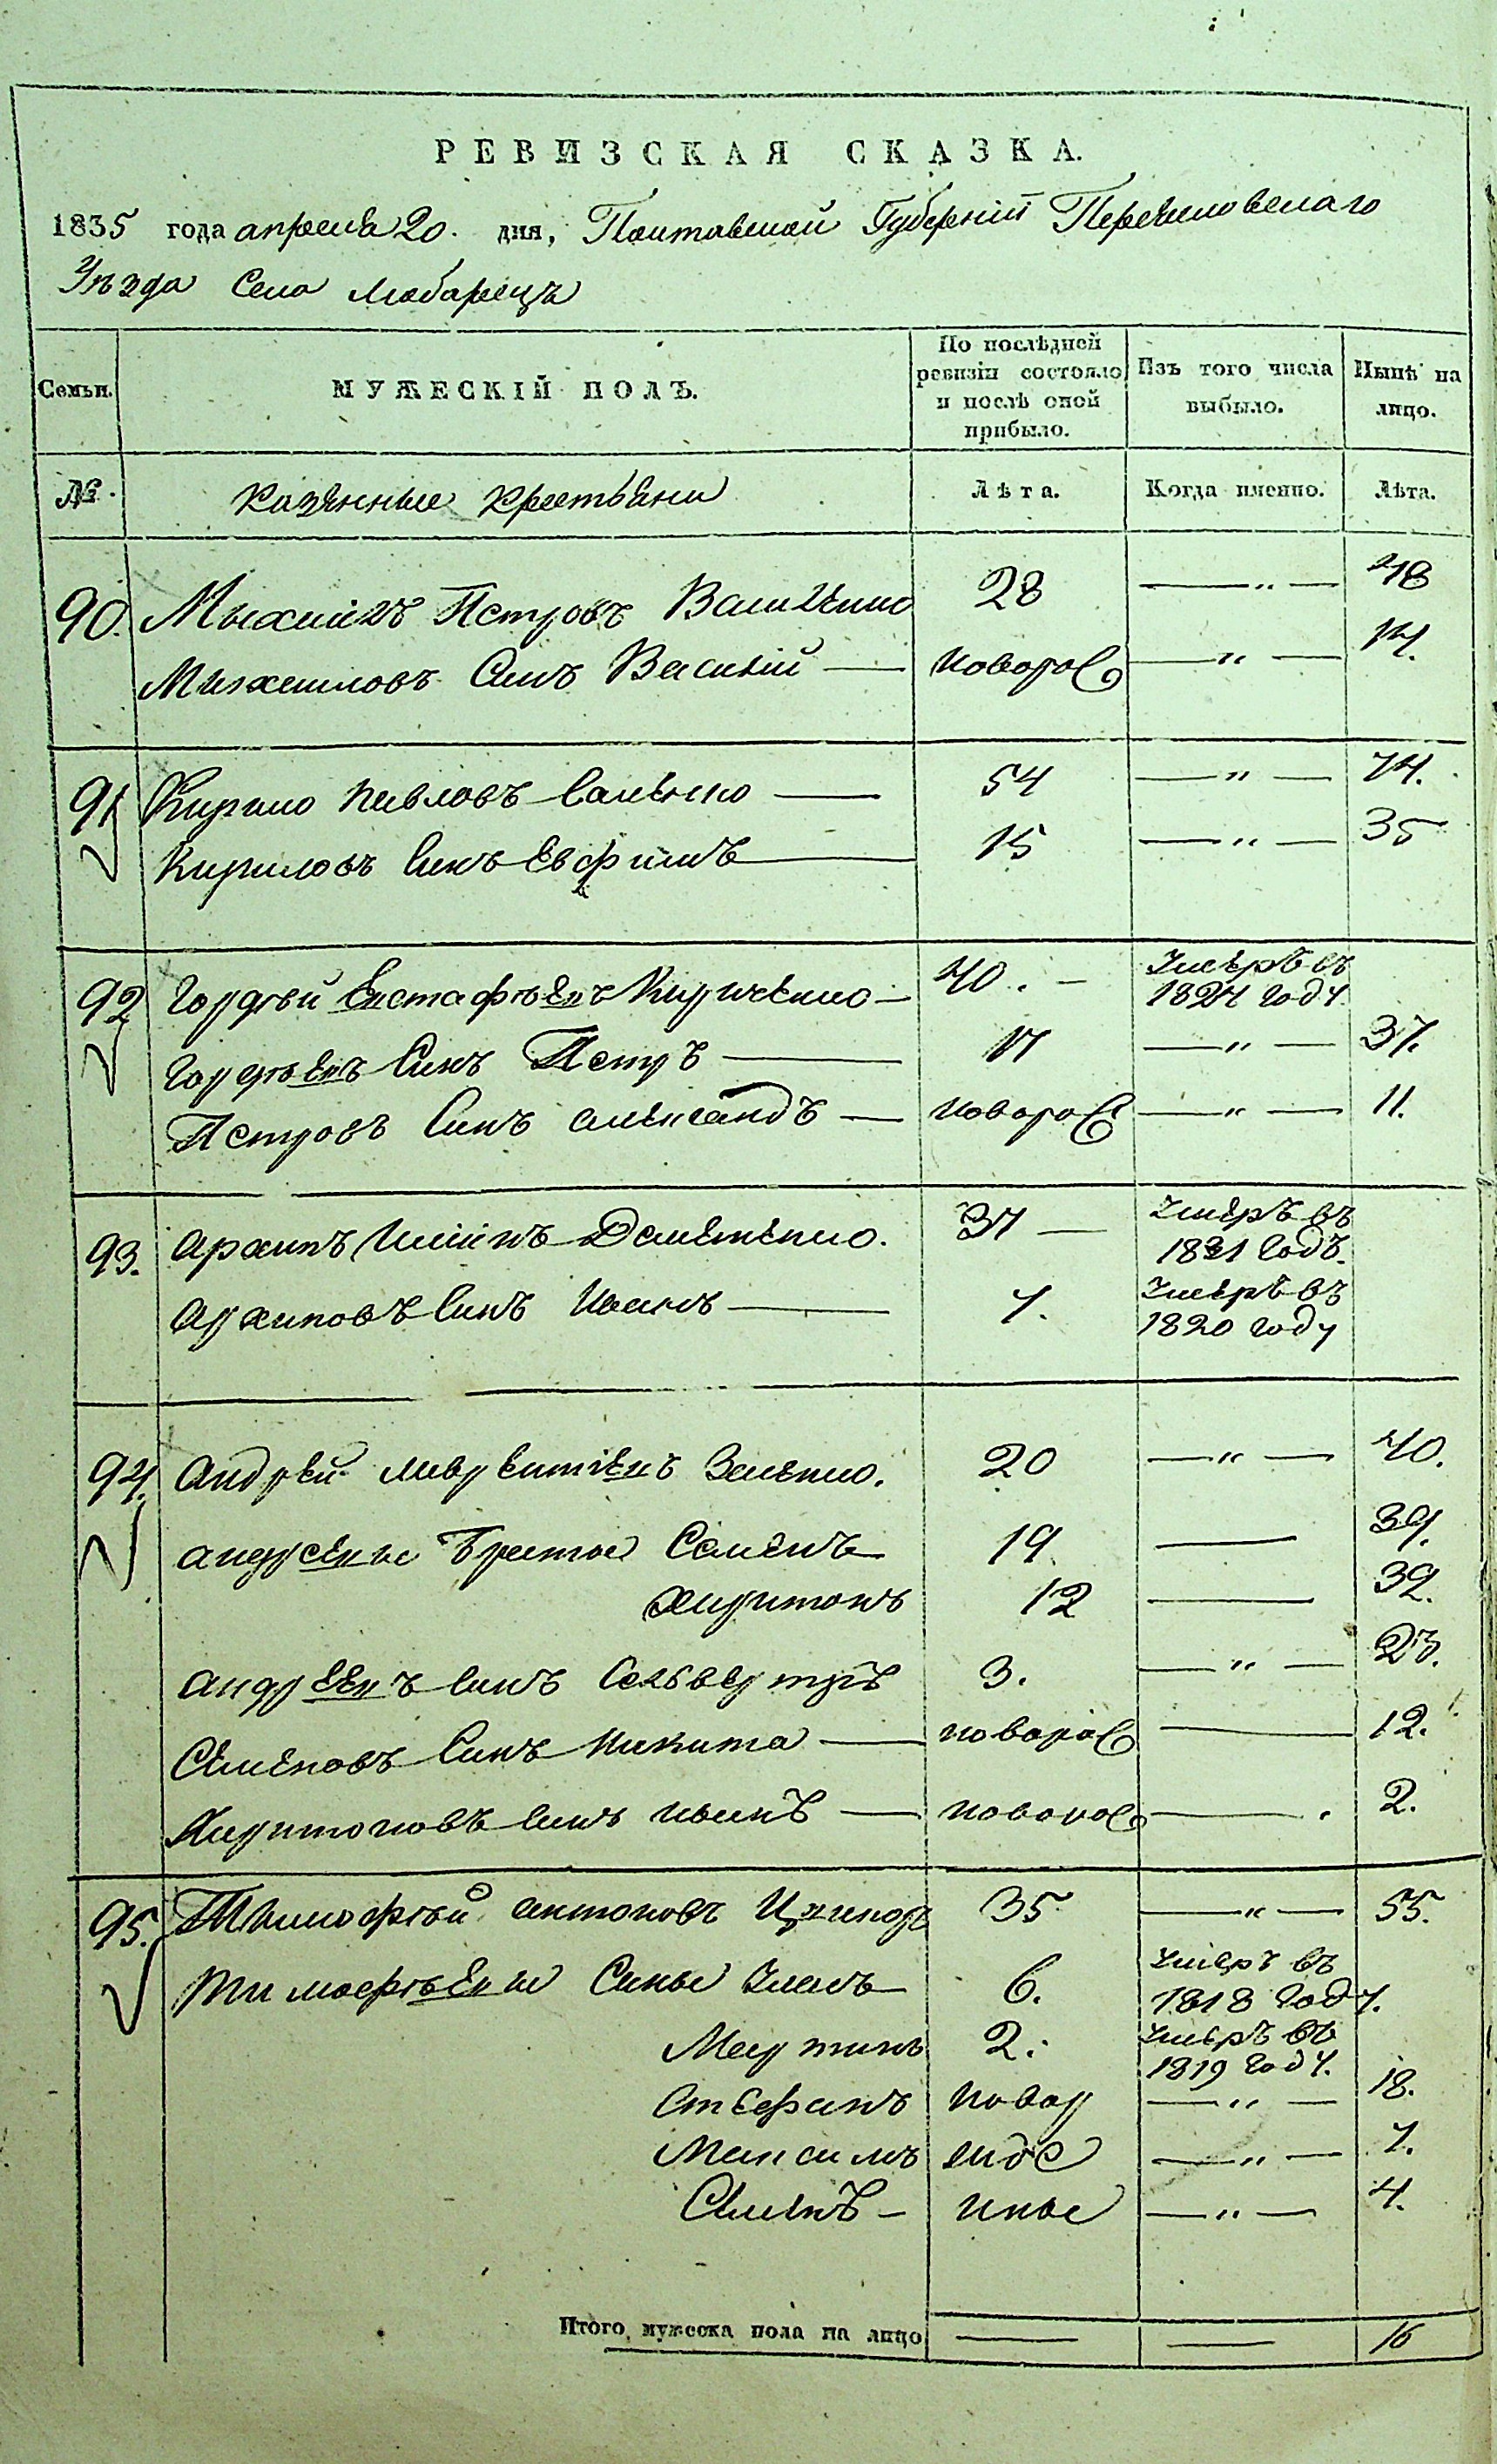 РЕВИЗСКАЯ СКАЗКА.
1835 года апреля 20. дня, Полтавской Губерніи Переяславскаго
Уѣзда Села Любарецъ
Семьи.
МУЖЕСКІЙ ПОЛЪ.
По послѣдней ревизіи состояло и послѣ оной прибыло.
Изъ того числа выбыло.
Нынѣ на лицо.
№. Казенные Крестьяни Лѣта. Когда именно. Лѣта.
90. Михаилъ Петровъ 28 — „ — 48
Михаиловъ Синъ Василій — новорож — „ — 14.
91 Кирило Павловъ — 54 — „ — 74.
Кириловъ Синъ Евфимъ — 15 — „ — 35
92 Гордѣй Евстафѣевъ Кириченко — 40. — Умеръ въ 1824 году.
Гордѣевъ Синъ Петръ — 17 — „ — 37.
Петровъ Синъ Александъ — новорож — „ — 11.
93. Архипъ 37 — Умеръ въ 1831 годъ.
Архиповъ Синъ Иванъ — 7. Умеръ въ 1820 году
94. Андрей Лаврентіевъ Заленко. 20 — „ — 40.
Андреевы Братья Семенъ 19 — 39.
Харитонъ 12 — 32.
Андреевъ Синъ Селивертръ 3. — „ — 23.
Семеновъ Синъ Никита — новорож — 12.
Харитоновъ Синъ Иванъ — новорож — . 2.
95. Тимофѣй Антоновъ 35 — „ — 55.
Тимофѣевы Сины Уласъ 6. Умеръ въ 1818 году.
Мартинъ 2. Умеръ въ 1819 году.
Стефанъ новор — „ — 18.
Максимъ ожде — „ — 7.
Семенъ — нные — „ — 4.
Итого мужеска пола на лицо — — 16